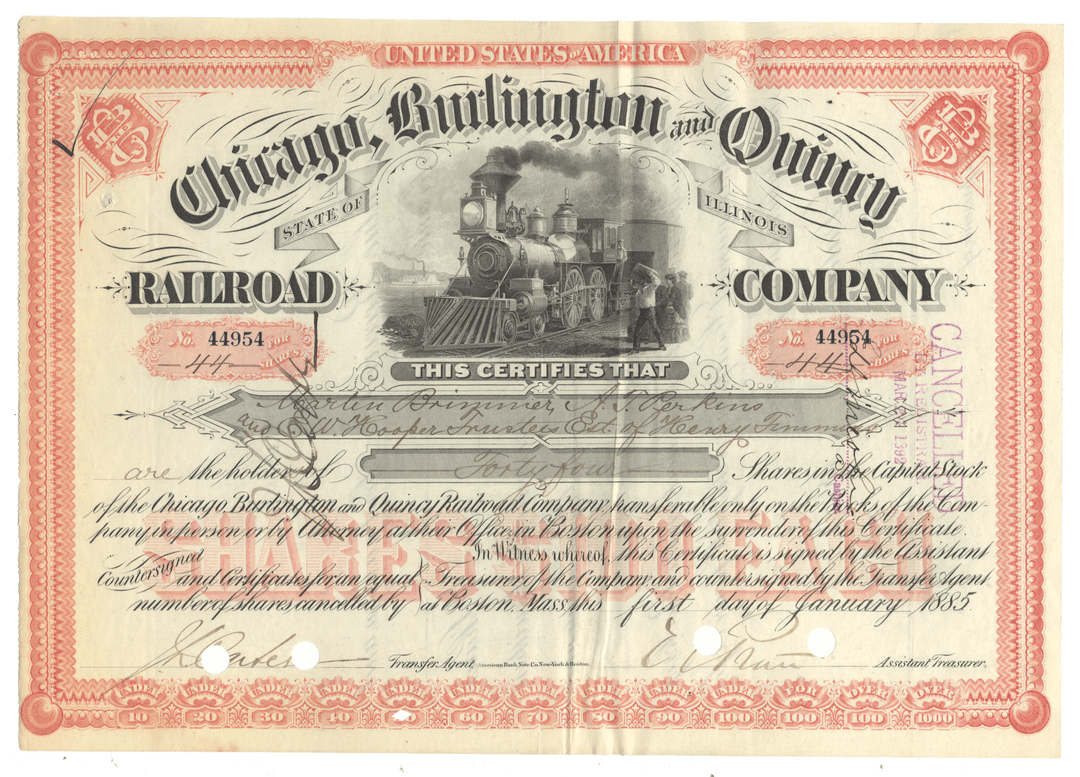 UNITED STATES OF AMERICA
Chicago, Burlington and Quincy
STATE OF ILLINOIS
RAILROAD COMPANY
No. 44954 FOR
44 SHARES
No. 44954 FOR
44 SHARES
THIS CERTIFIES THAT
Martin Brimmer, A. T. Perkins
and E. W. Hooper Trustees Est. of Henry Timmins
are the holders of Forty four Shares in the Capital Stock
of the Chicago, Burlington and Quincy Railroad Company, transferable only on the Books of the Com-
pany, in person or by Attorney at their Office in Boston upon the surrender of this Certificate.
SHARES $100 EACH
In Witness whereof, this Certificate is signed by the Assistant
Countersigned
and Certificates for an equal
number of shares cancelled by
Treasurer of the Company and countersigned by the Transfer Agent
at Boston, Mass, this first day of January 1885
Transfer Agent
American Bank Note Co. New-York & Boston.
Assistant Treasurer.
CANCELLED
UNDER 10
UNDER 20
UNDER 30
UNDER 40
UNDER
UNDER 60
UNDER 70
UNDER 80
UNDER 90
UNDER 100
FOR 100
OVER 100
OVER 1000